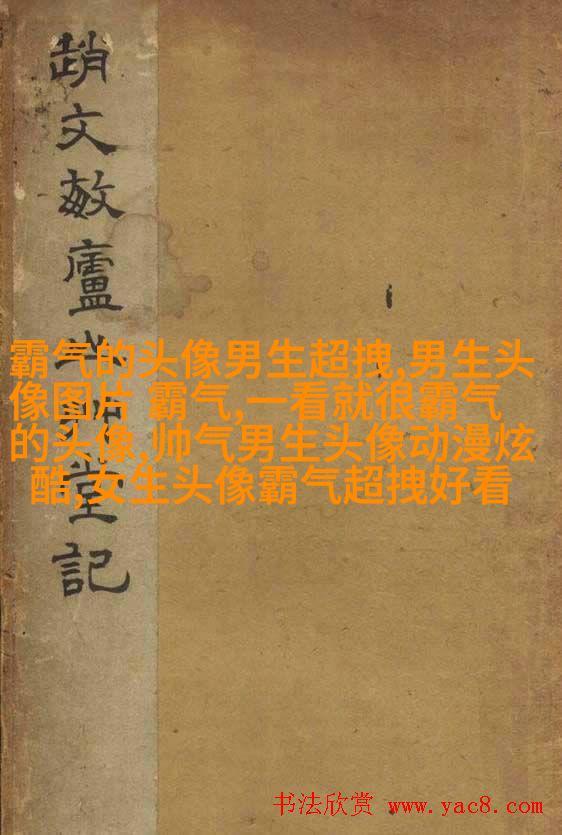 趙文敏廬山草堂記
霸气的头像男生超拽,男生头
像图片 霸气,一看就很霸气
的头像,帅气男生头像动漫炫
酷,女生头像霸气超拽好看
书法欣赏 www.yac8.com